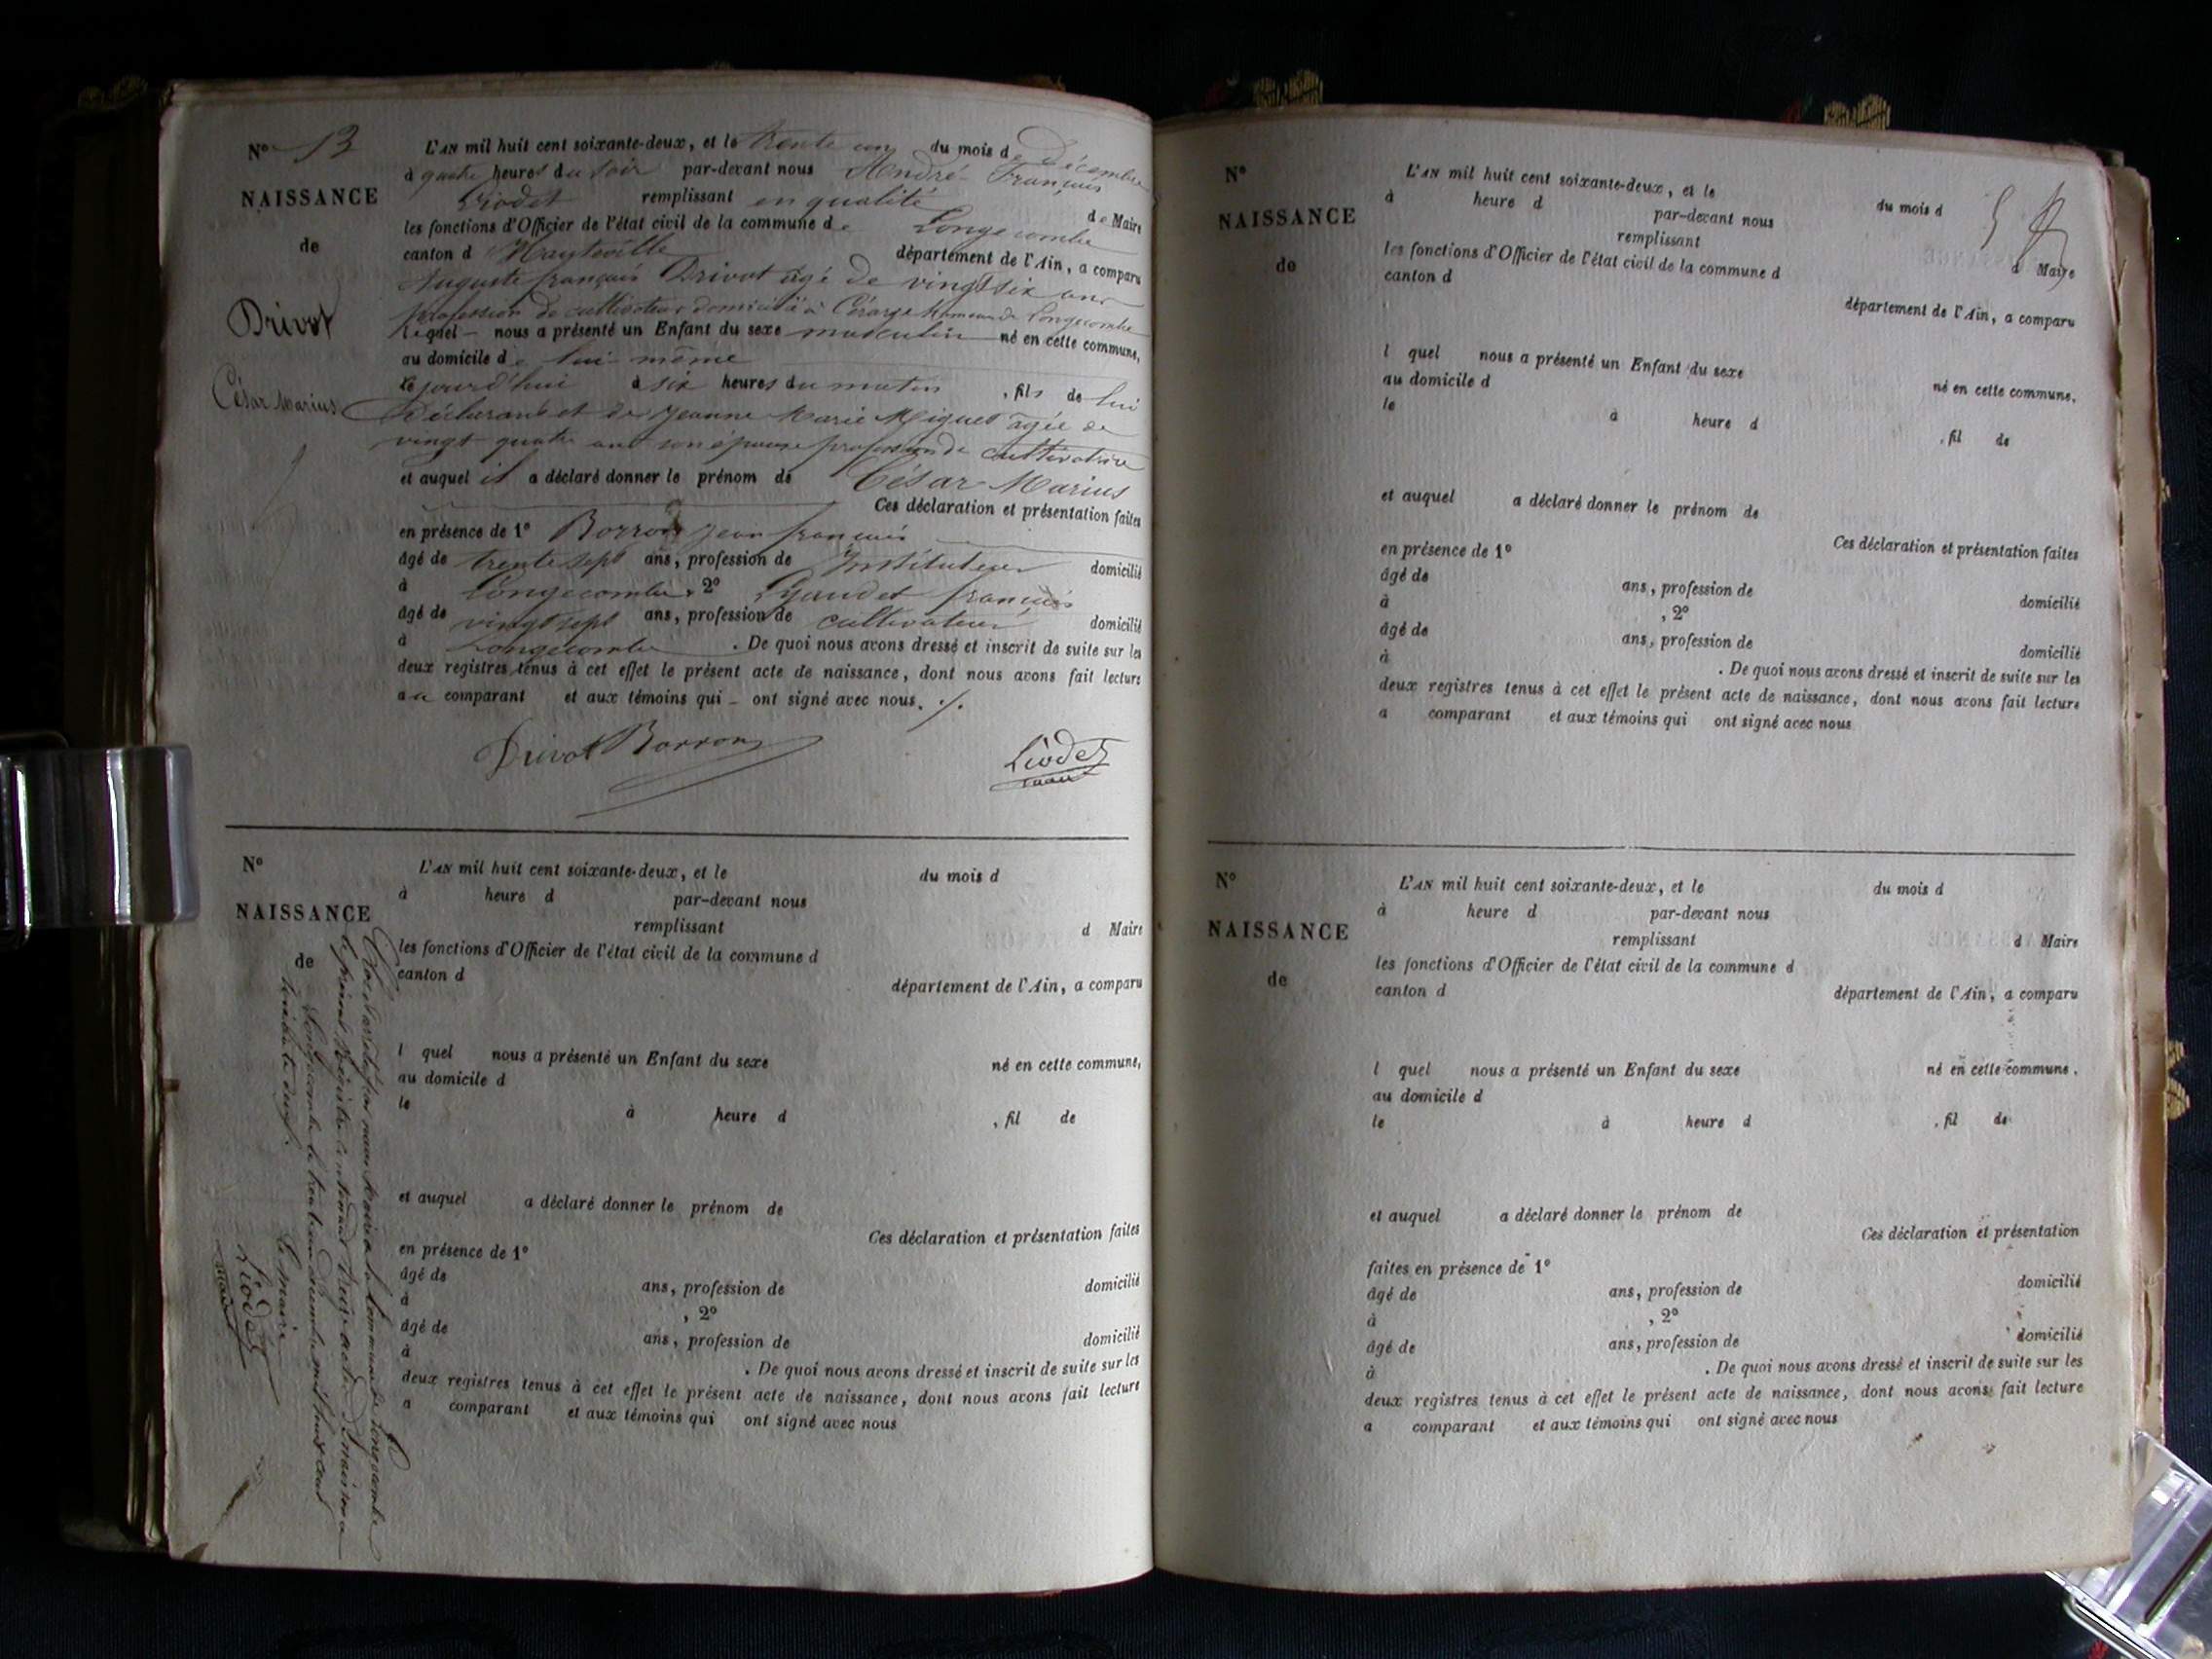 N° 13
NAISSANCE
de
Drivot
César Marius
L'AN mil huit cent soixante-deux, et le trente un du mois de Décembre
à quatre heures du soir par-devant nous André François
Liodet remplissant en qualité de Maire
les fonctions d'Officier de l'état civil de la commune de Longecombe
canton d Hauteville département de l'Ain, a comparu
Auguste françois Drivot âgé de vingt six ans
profession de cultivateur domicilié à hameau de Longecombe
lequel nous a présenté un Enfant du sexe masculin né en cette commune,
au domicile de lui même
le jourd'hui à six heures du matin, fils de lui
Déclarant et de Jeanne Marie Miguet âgée de
vingt quatre ans son épouse profession de cultivatrice
et auquel il a déclaré donner le prénom de César Marius
Ces déclaration et présentation faites
en présence de 1° Borron jean françois
âgé de trente sept ans, profession de Instituteur domicilié
à Longecombe, 2° Gaudet françois
âgé de vingt sept ans, profession de cultivateur domicilié
à Longecombe. De quoi nous avons dressé et inscrit de suite sur les
deux registres tenus à cet effet le présent acte de naissance, dont nous avons fait lecture
au comparant et aux témoins qui ont signé avec nous. ./.
Drivot Borron Liodet
maire
N°
NAISSANCE
de
L'AN mil huit cent soixante-deux, et le du mois d
à heure d par-devant nous
remplissant d Maire
les fonctions d'Officier de l'état civil de la commune d
canton d
département de l'Ain, a comparu
l quel nous a présenté un Enfant du sexe né en cette commune,
au domicile d
le à heure d , fil de
et auquel a déclaré donner le prénom de
Ces déclaration et présentation faites
en présence de 1°
âgé de ans, profession de domicilié
à , 2°
âgé de ans, profession de domicilié
à . De quoi nous avons dressé et inscrit de suite sur les
deux registres tenus à cet effet le présent acte de naissance, dont nous avons fait lecture
a comparant et aux témoins qui ont signé avec nous
Clos et arrêté par nous Maire de la Commune de Longecombe
le présent Registre contenant treize actes de naissance
à Longecombe le trente un décembre mil huit cent
soixante deux.
Le maire
Liodet
maire
N°
NAISSANCE
de
L'AN mil huit cent soixante-deux, et le du mois d
à heure d par-devant nous
remplissant d Maire
les fonctions d'Officier de l'état civil de la commune d
canton d
département de l'Ain, a comparu
l quel nous a présenté un Enfant du sexe né en cette commune,
au domicile d
le à heure d , fil de
et auquel a déclaré donner le prénom de
Ces déclaration et présentation faites
en présence de 1°
âgé de ans, profession de domicilié
à , 2°
âgé de ans, profession de domicilié
à . De quoi nous avons dressé et inscrit de suite sur les
deux registres tenus à cet effet le présent acte de naissance, dont nous avons fait lecture
a comparant et aux témoins qui ont signé avec nous
N°
NAISSANCE
de
L'AN mil huit cent soixante-deux, et le du mois d
à heure d par-devant nous
remplissant d Maire
les fonctions d'Officier de l'état civil de la commune d
canton d département de l'Ain, a comparu
l quel nous a présenté un Enfant du sexe né en cette commune,
au domicile d
le à heure d , fil de
et auquel a déclaré donner le prénom de
Ces déclaration et présentation
faites en présence de 1°
âgé de ans, profession de domicilié
à , 2°
âgé de ans, profession de domicilié
à . De quoi nous avons dressé et inscrit de suite sur les
deux registres tenus à cet effet le présent acte de naissance, dont nous avons fait lecture
a comparant et aux témoins qui ont signé avec nous